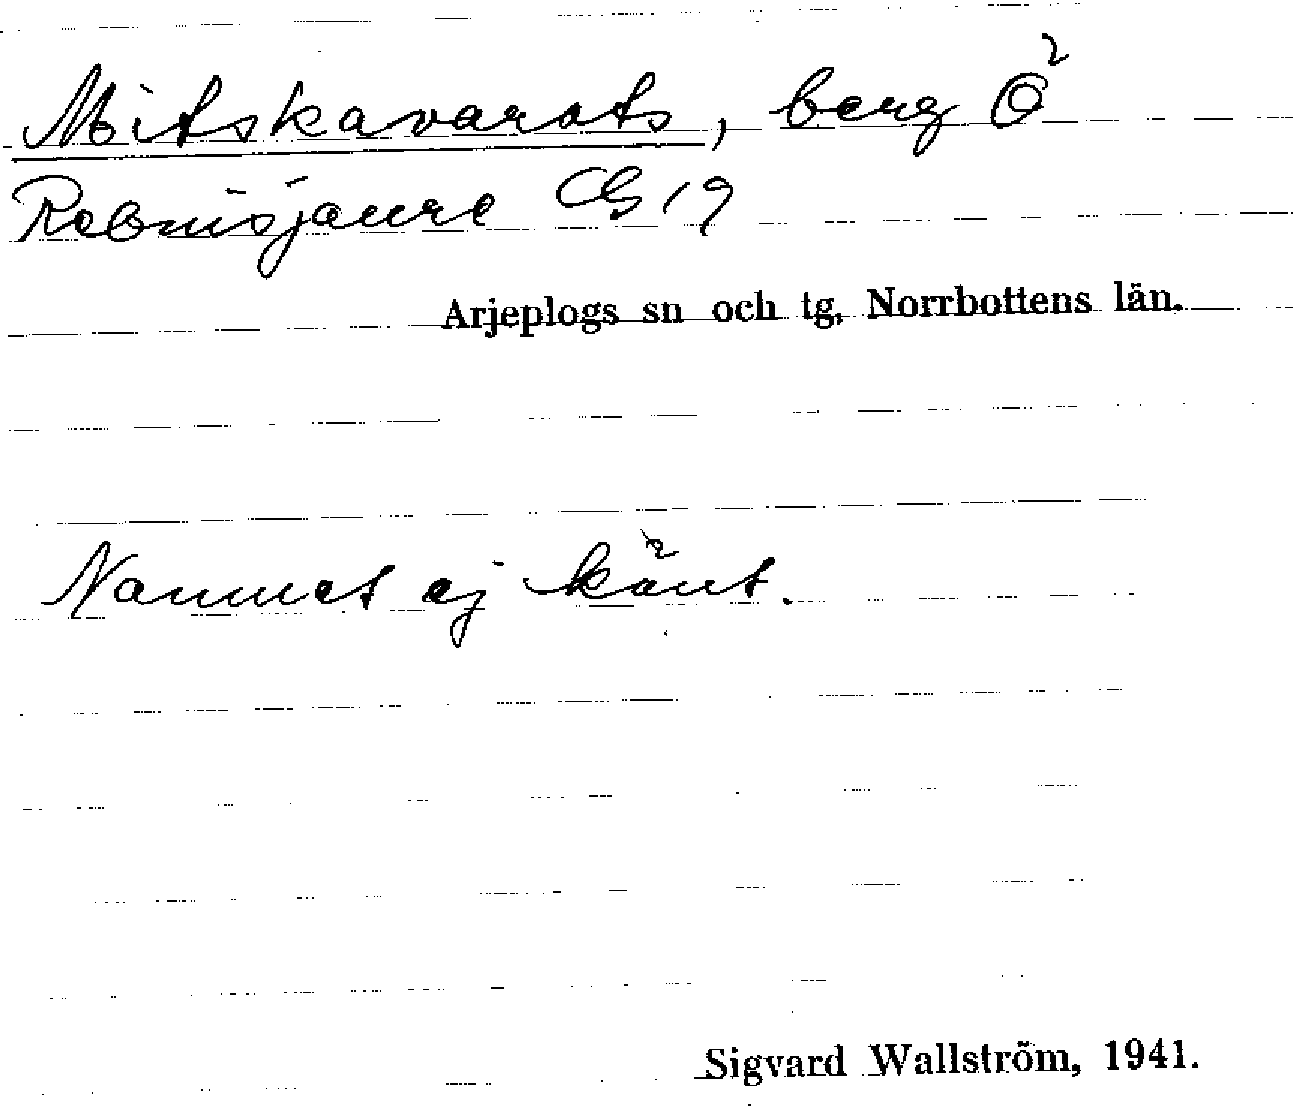 Mitskavarats, berg Ö
Rebnisjaure CG 19
Arjeplogs sn och tg, Norrbottens län.
Namnet ej känt.
Sigvard Wallström, 1941.